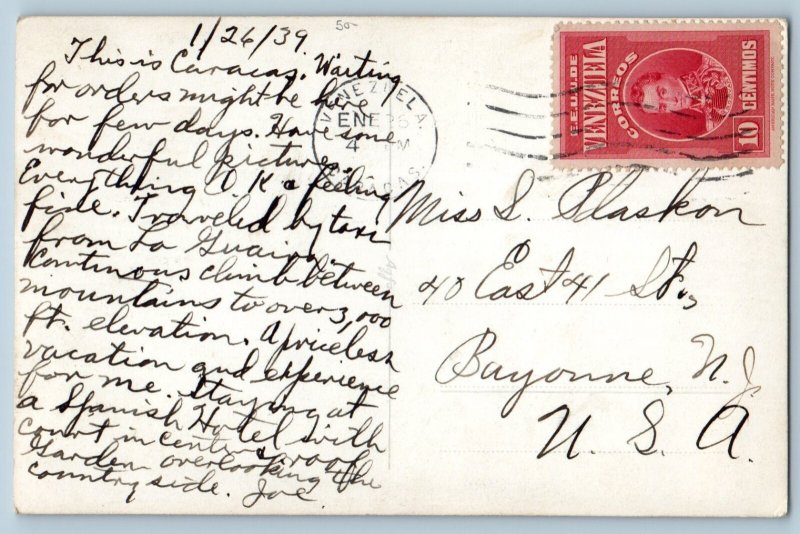 1/26/39
50
This is Caracas. Waiting
for orders might be here
for few days. Have some
wonderful pictures.
Everything O.K. & feeling
fine. Traveled by taxi
from La Guaira.
Continous climb between
mountains to over 3,000
ft. elevation. A priceless
vacation and experience
for me. Staying at
a Spanish Hotel with
court in center & roof
Garden overlooking the
country side. Joe
VENEZUELA.
ENE 26
4 M
CAS
E.E.U.U. DE
VENEZUELA
CORREOS
10 CENTIMOS
Miss S. Plaskon
40 East 41 St.,
Bayonne, N.J.
U. S. A.